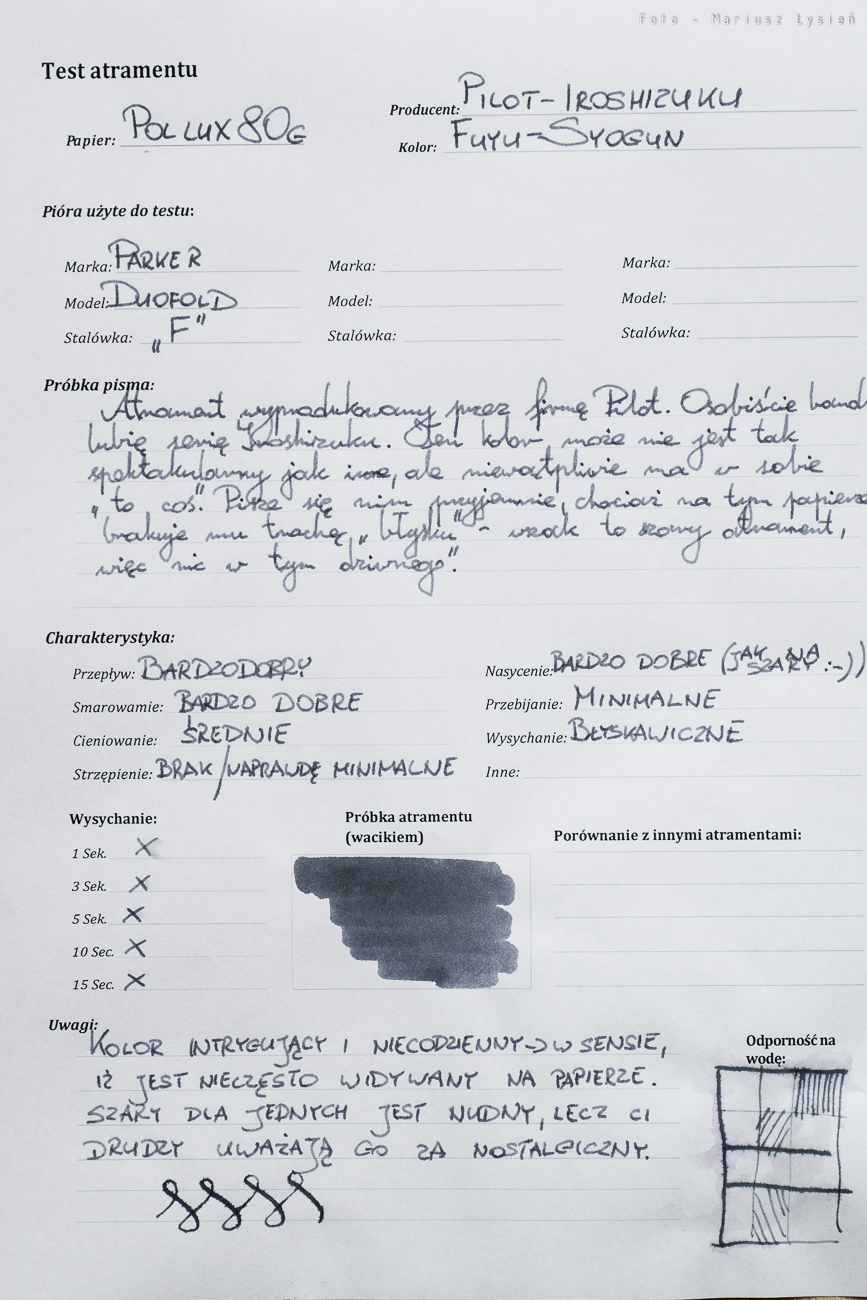 Foto - Mariusz Łysień
Test atramentu
Papier: POLLUX 80G
Producent: PILOT - IROSHIZUKU
Kolor: FUYU-SYOGUN
Pióra użyte do testu:
Marka: PARKER Marka: Marka:
Model: DUOFOLD Model: Model:
Stalówka: „F” Stalówka: Stalówka:
Próbka pisma:
Atrament wyprodukowany przez firmę Pilot. Osobiście bard
lubię serię Iroshizuku. Ten kolor może nie jest tak
spektakularny jak inne, ale niewątpliwie ma w sobie
„to coś”. Pisze się nim przyjemnie, chociaż na tym papierze
brakuje mu trochę „błysku” - wszak to szary atrament,
więc nic w tym dziwnego”.
Charakterystyka:
Przepływ: BARDZO DOBRY
Smarowamie: BARDZO DOBRE
Cieniowanie: ŚREDNIE
Strzępienie: BRAK/NAPRAWDĘ MINIMALNE
Nasycenie: BARDZO DOBRE (JAK NA SZARY :-))
Przebijanie: MINIMALNE
Wysychanie: BŁYSKAWICZNE
Inne:
Wysychanie:
1 Sek. X
3 Sek. X
5 Sek. X
10 Sec. X
15 Sec. X
Próbka atramentu
(wacikiem)
Porównanie z innymi atramentami:
Uwagi:
KOLOR INTRYGUJĄCY I NIECODZIENNY -> W SENSIE,
IŻ JEST NIECZĘSTO WIDYWANY NA PAPIERZE.
SZARY DLA JEDNYCH JEST NUDNY, LECZ CI
DRUDZY UWAŻAJĄ GO ZA NOSTALGICZNY.
Odporność na
wodę: